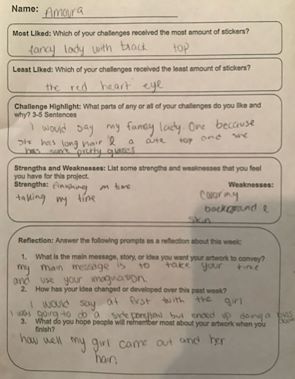 Name: Amoura
Most Liked: Which of your challenges received the most amount of stickers?
fancy lady with black top
Least Liked: Which of your challenges received the least amount of stickers?
the red heart eye
Challenge Highlight: What parts of any or all of your challenges do you like and
why? 3-5 Sentences
I would say my fansy lady. One because
she has long hair & a cute top and she
has some pretty glasses
Strengths and Weaknesses: List some strengths and weaknesses that you feel
you have for this project.
Strengths: finishing on time Weaknesses:
taking my time coloring
background &
skin
Reflection: Answer the following prompts as a reflection about this week:
1. What is the main message, story, or idea you want your artwork to convey?
my main message is to take your time
and use your imagination
2. How has your idea changed or developed over this past week?
I would say at first with the girl
I was going to do a side ponytail but ended up doing a
3. What do you hope people will remember most about your artwork when you
finish?
how well my girl came out and her
hair.